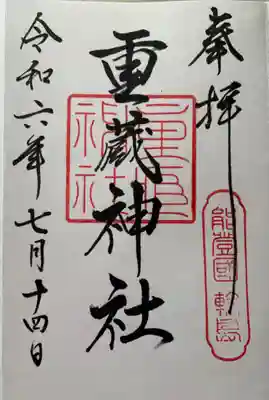 奉拝
能登國 軓島
重蔵神社
重蔵神社
令和六年七月十四日